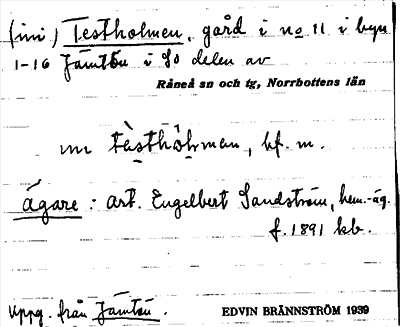 (ini) Testholmen, gård i no 11 i byn
1-16 Jämtön i SO delen av
Råneå sn och tg, Norrbottens län
un tàsthò̩l̩man, bf. m.
Ägare: art. Engelbert Sandström, hem.-äg.
f. 1891 kb.
Uppg. från Jämtön.
EDVIN BRÄNNSTRÖM 1939